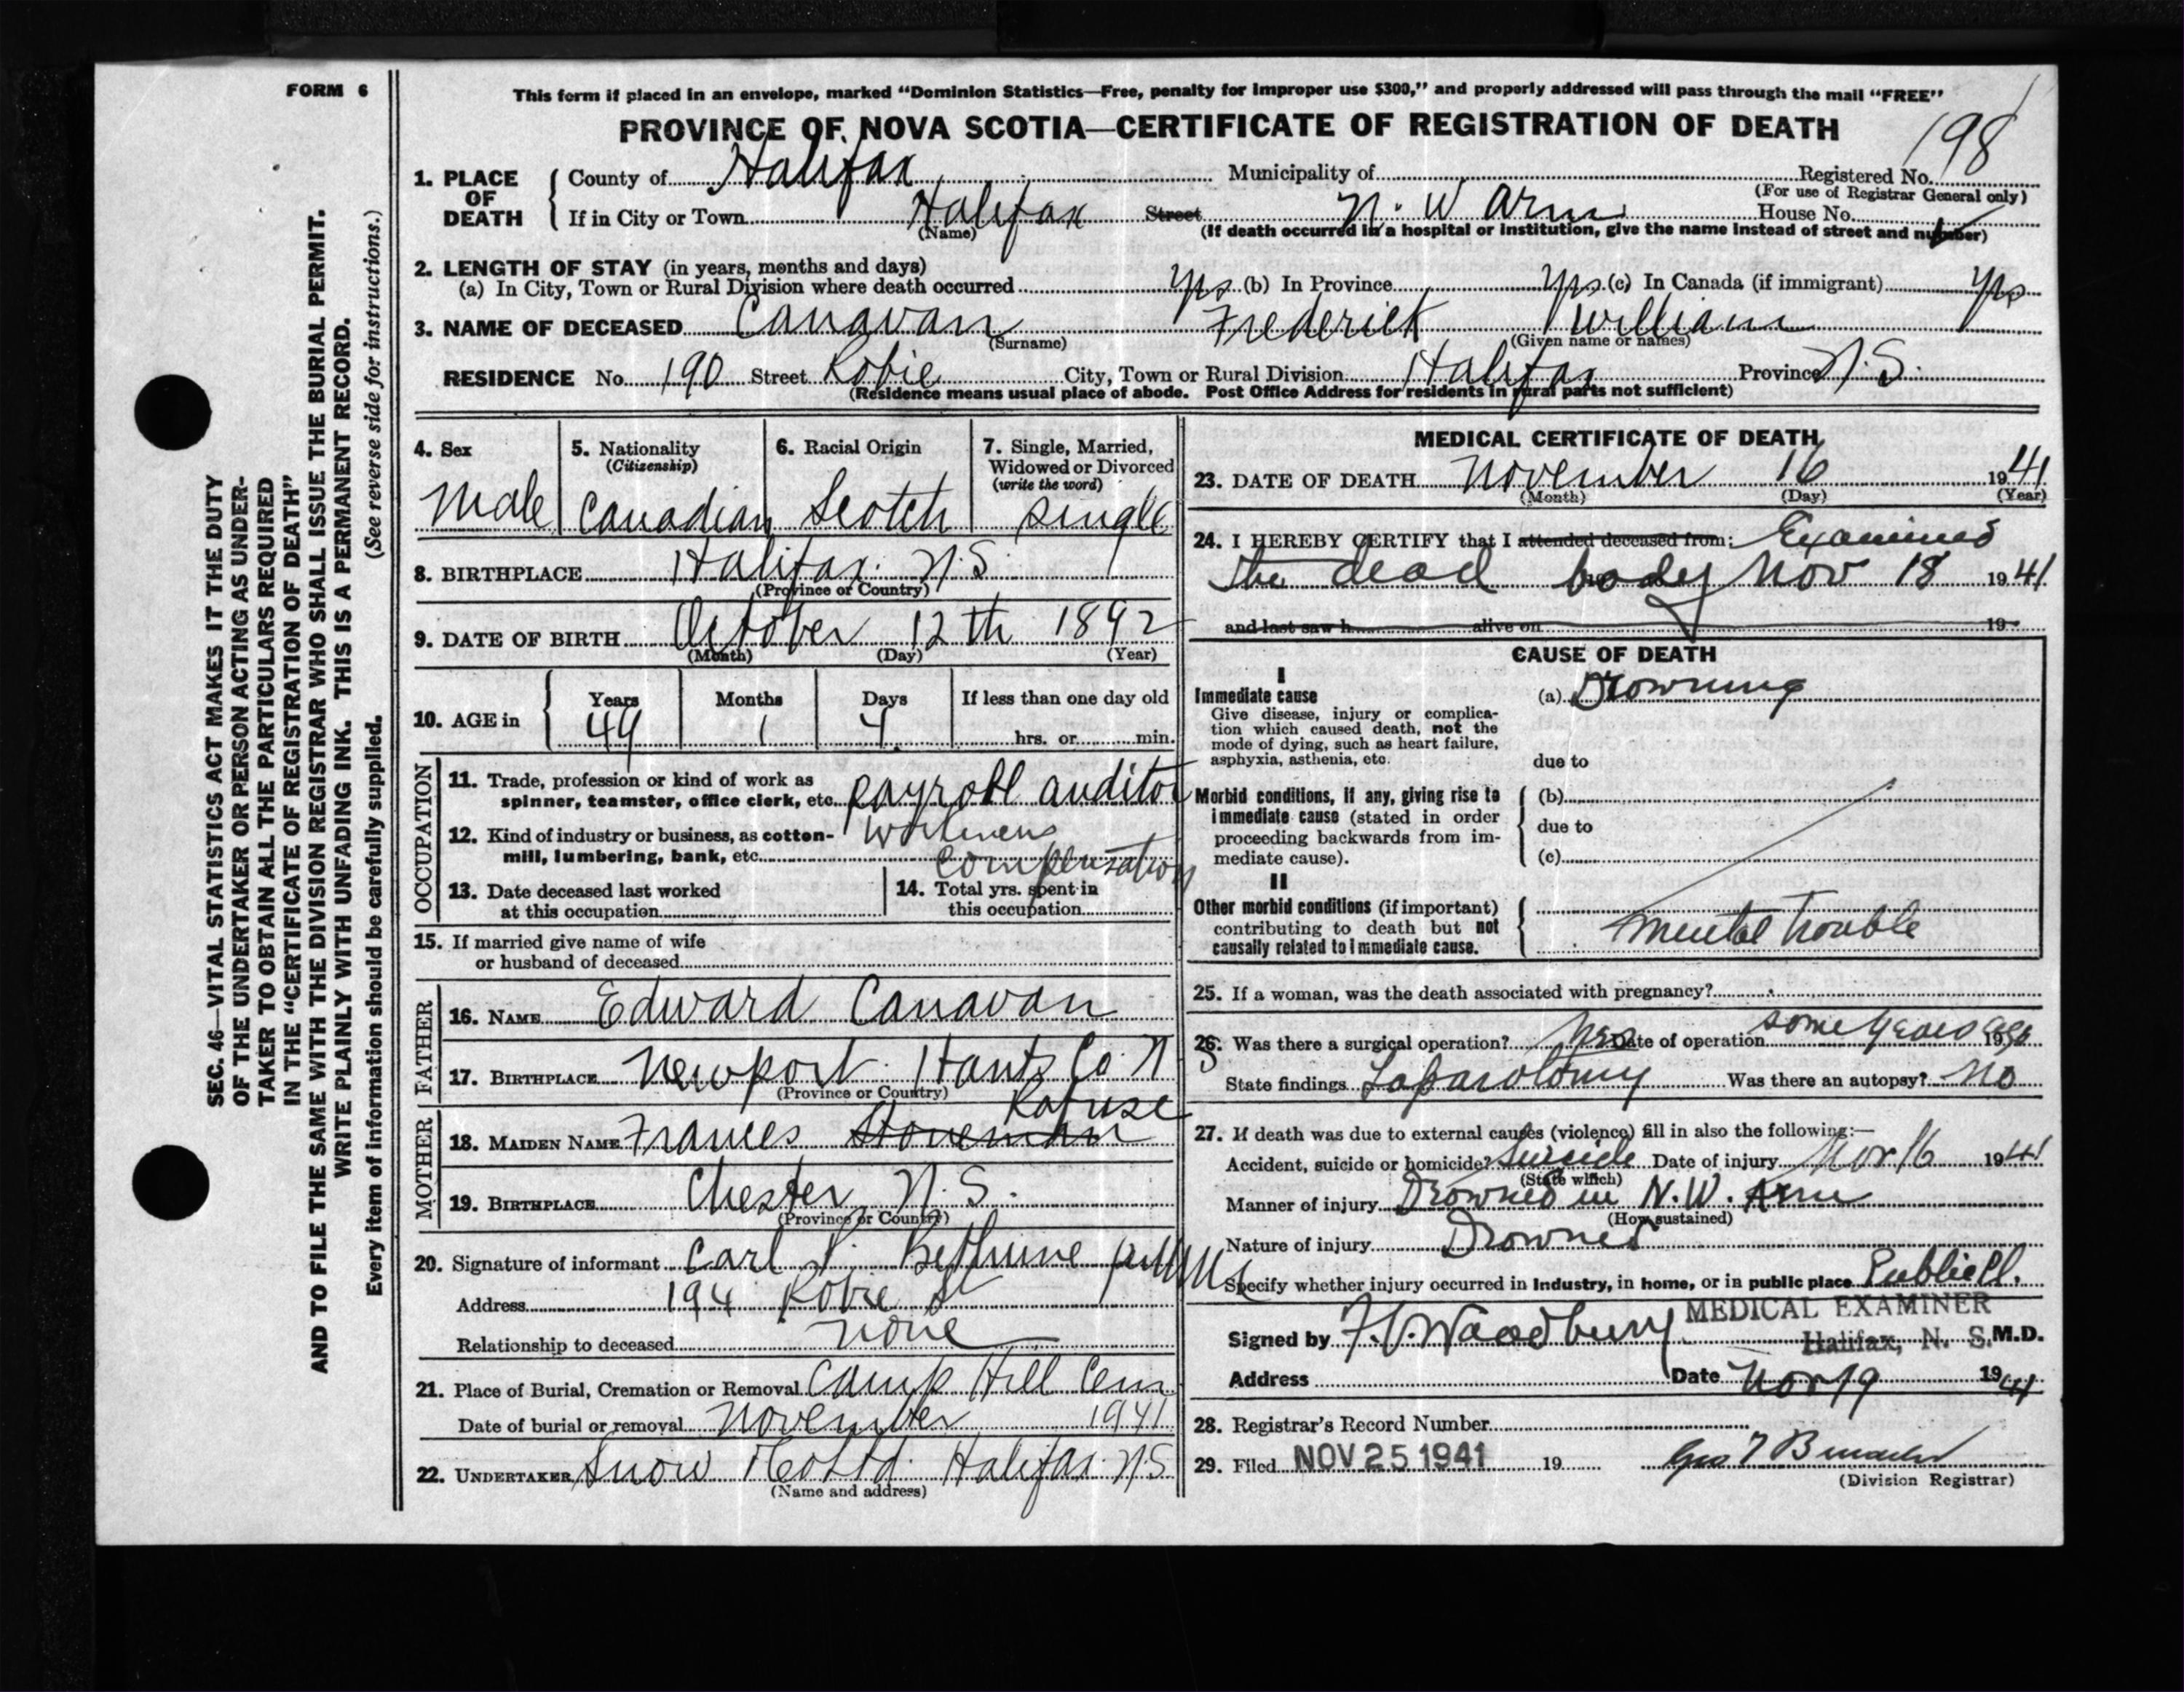 FORM 6
This form if placed in an envelope, marked "Dominion Statistics—Free, penalty for improper use $300," and properly addressed will pass through the mail "FREE"
PROVINCE OF NOVA SCOTIA—CERTIFICATE OF REGISTRATION OF DEATH
198
1. PLACE OF DEATH County of Halifax Municipality of Registered No.
(For use of Registrar General only)
If in City or Town Halifax Street N. W Arm House No.
(Name) (If death occurred in a hospital or institution, give the name instead of street and number)
2. LENGTH OF STAY (in years, months and days)
(a) In City, Town or Rural Division where death occurred yrs (b) In Province yrs (c) In Canada (if immigrant) yrs
3. NAME OF DECEASED Canavan Frederick William
(Surname) (Given name or names)
RESIDENCE No. 190 Street Robie City, Town or Rural Division Halifax Province N.S.
(Residence means usual place of abode. Post Office Address for residents in rural parts not sufficient)
4. Sex 5. Nationality 6. Racial Origin 7. Single, Married,
(Citizenship) Widowed or Divorced
(write the word)
male Canadian Scotch single
8. BIRTHPLACE Halifax. N.S.
(Province or Country)
9. DATE OF BIRTH October 12th 1892
(Month) (Day) (Year)
10. AGE in Years Months Days If less than one day old
49 1 4 hrs. or min.
OCCUPATION
11. Trade, profession or kind of work as
spinner, teamster, office clerk, etc. payroll auditor
12. Kind of industry or business, as cotton- workmens
mill, lumbering, bank, etc. Compensation
13. Date deceased last worked
at this occupation
14. Total yrs. spent in
this occupation
15. If married give name of wife
or husband of deceased
FATHER
16. NAME Edward Canavan
17. BIRTHPLACE Newport Hants Co N
(Province or Country)
MOTHER
Rafuse
18. MAIDEN NAME Frances Stoneman
19. BIRTHPLACE Chester N.S.
(Province or Country)
20. Signature of informant Carl P. Bethune
Address 194 Robie St
Relationship to deceased none
21. Place of Burial, Cremation or Removal Camp Hill Cem
Date of burial or removal November 1941
22. UNDERTAKER Snow & Co Ltd. Halifax N.S
(Name and address)
MEDICAL CERTIFICATE OF DEATH
23. DATE OF DEATH November 16 1941
(Month) (Day) (Year)
24. I HEREBY CERTIFY that I attended deceased from: Examined
the dead body Nov 18 1941
and last saw h alive on 19
CAUSE OF DEATH
I
Immediate cause (a) Drowning
Give disease, injury or complica-
tion which caused death, not the
mode of dying, such as heart failure,
asphyxia, asthenia, etc. due to
Morbid conditions, if any, giving rise to (b)
immediate cause (stated in order
proceeding backwards from im- due to
mediate cause). (c)
II
Other morbid conditions (if important)
contributing to death but not mental trouble
causally related to immediate cause.
25. If a woman, was the death associated with pregnancy?
26. Was there a surgical operation? yes Date of operation some years ago 19
State findings Laparotomy Was there an autopsy? no
27. If death was due to external causes (violence) fill in also the following:—
Accident, suicide or homicide? Suicide Date of injury Nov 16 1941
(State which)
Manner of injury Drowned in N.W. Arm
(How sustained)
Nature of injury Drowned
Specify whether injury occurred in industry, in home, or in public place Public Pl.
MEDICAL EXAMINER
Signed by F.V. Woodbury Halifax, N. S. M.D.
Address Date Nov 19 1941
28. Registrar's Record Number
29. Filed NOV 25 1941 19
(Division Registrar)
SEC. 46—VITAL STATISTICS ACT MAKES IT THE DUTY
OF THE UNDERTAKER OR PERSON ACTING AS UNDER-
TAKER TO OBTAIN ALL THE PARTICULARS REQUIRED
IN THE "CERTIFICATE OF REGISTRATION OF DEATH"
AND TO FILE THE SAME WITH THE DIVISION REGISTRAR WHO SHALL ISSUE THE BURIAL PERMIT.
WRITE PLAINLY WITH UNFADING INK. THIS IS A PERMANENT RECORD.
Every item of information should be carefully supplied. (See reverse side for instructions.)